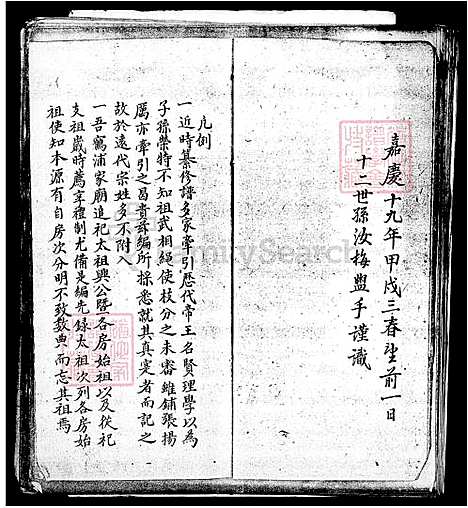 嘉慶十九年甲戌三春望前一日
十二世孫汝梅盥手謹識
凡例
一近時纂修譜多家牽引歷代帝王名賢理學以為
子孫榮特不知祖武相繩使枝分之未審雖鋪張揚
厲亦牽引之曷貴茲編所採悉就其真寔者而記之
故於遠代宗姓多不附入
一吾寫浦家廟追祀太祖興公暨各房始祖以及從祀
支祖歲時薦享禮制尤備是編先錄太祖次列各房始
祖使知本源有自房次分明不致數典而忘其祖焉
FamilySearch